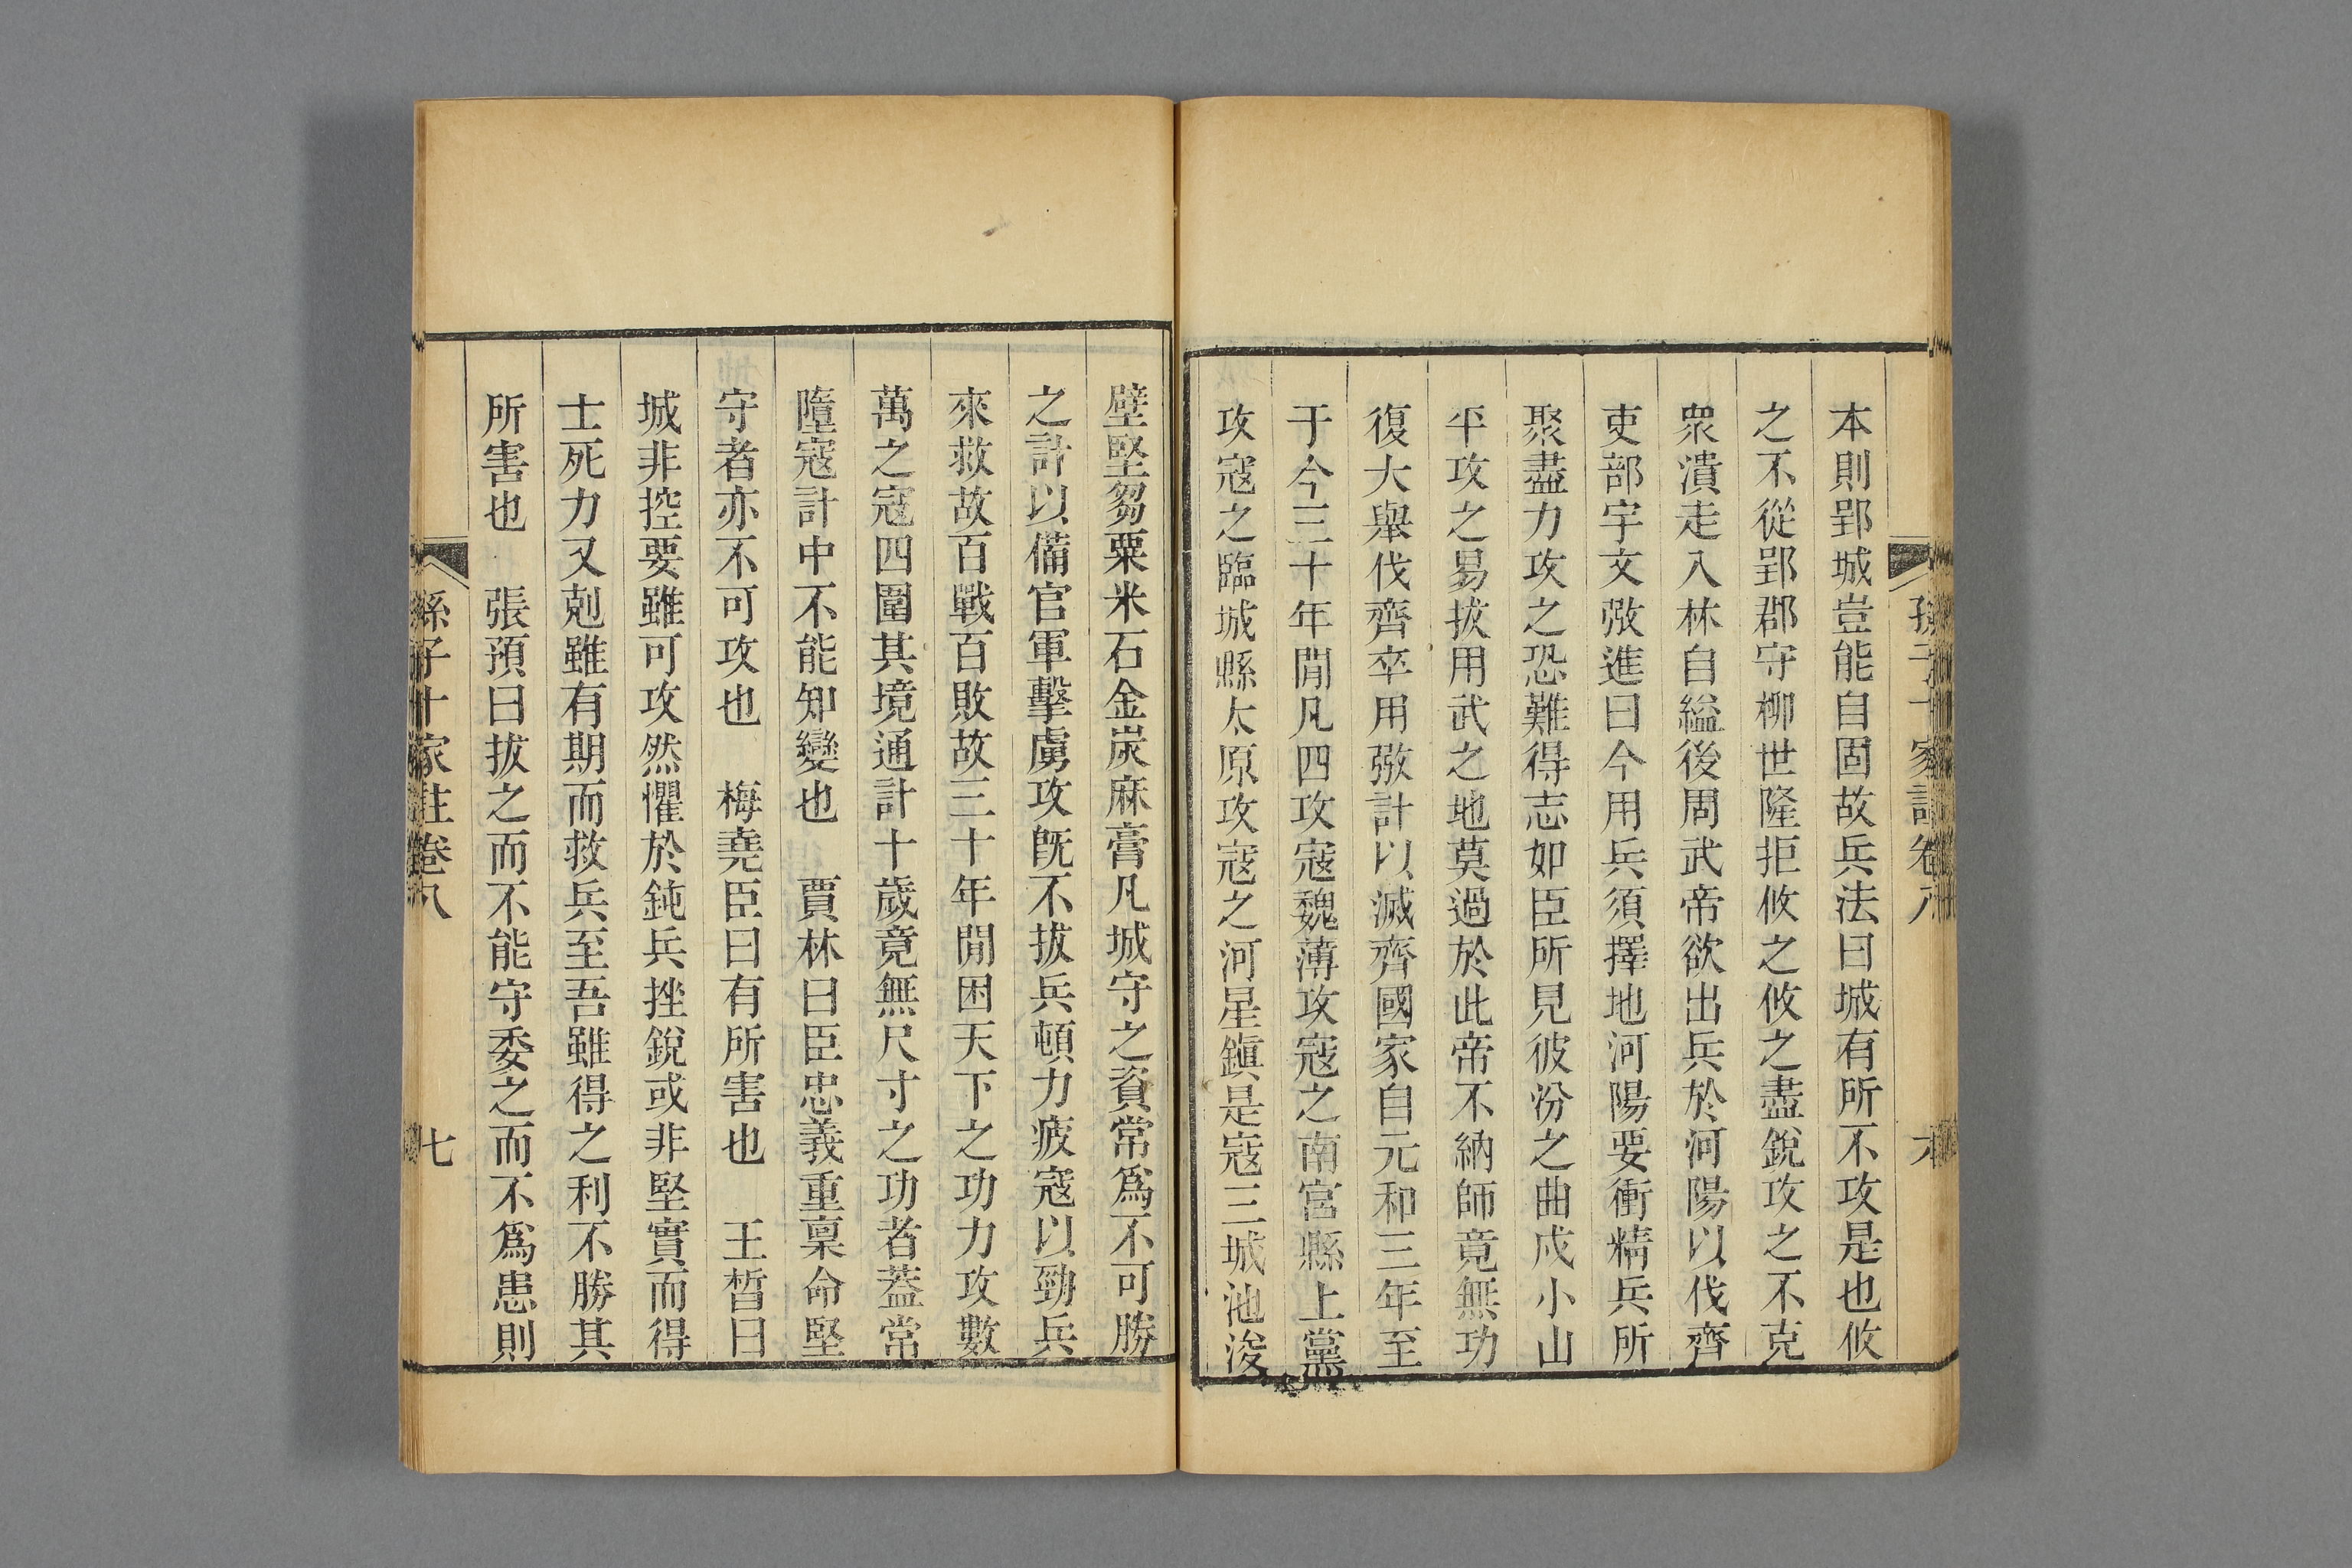 孫子十家註卷八
六
本則郢城豈能自固故兵法曰城有所不攻是也攸
之不從郢郡守柳世隆拒攸之攸之盡銳攻之不克
衆潰走入林自縊後周武帝欲出兵於河陽以伐齊
吏部宇文㢸進曰今用兵須擇地河陽要衝精兵所
聚盡力攻之恐難得志如臣所見彼汾之曲戍小山
平攻之易拔用武之地莫過於此帝不納師竟無功
復大舉伐齊卒用㢸計以滅齊國家自元和三年至
于今三十年閒凡四攻寇魏薄攻寇之南宮縣上黨
攻寇之臨城縣太原攻寇之河星鎮是寇三城池浚
壁堅芻粟米石金炭麻膏凡城守之資常爲不可勝
之計以備官軍擊虜攻旣不拔兵頓力疲寇以勁兵
來救故百戰百敗故三十年閒困天下之功力攻數
萬之寇四圍其境通計十歲竟無尺寸之功者蓋常
墮寇計中不能知變也　賈林曰臣忠義重稟命堅
守者亦不可攻也　梅堯臣曰有所害也　王晳曰
城非控要雖可攻然懼於鈍兵挫銳或非堅實而得
士死力又剋雖有期而救兵至吾雖得之利不勝其
所害也　張預曰拔之而不能守委之而不爲患則
孫子十家註卷八
七